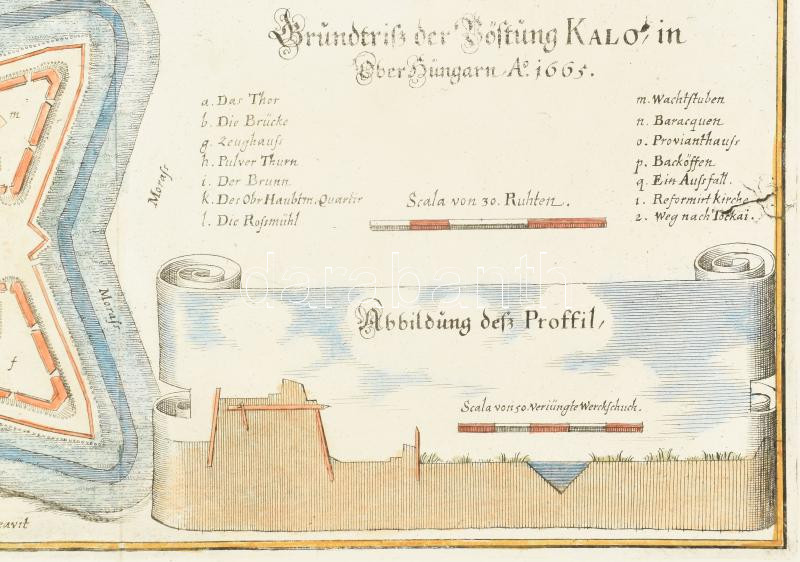 Grundtriß der Vöstung KALO, in
Ober Hungarn Aº. 1665.
a. Das Thor
b. Die Brücke
g. Zeughauß
h. Pulver Thurn
i. Der Brunn
k. Des Obr Haubtm. Quartir
l. Die Rossmühl
m. Wachtstuben
n. Baracquen
o. Provianthauß
p. Backöffen
q. Ein Aussfall.
1. Reformirt kirche
2. Weg nach Tockai.
Scala von 30. Ruhten.
m
Morass
Morass
f
darabanth
Abbildung deß Proffil,
Scala von 50. Veriüngte Werckschuch.